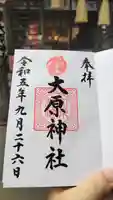 奉拝
大原神社
令和五年九月二十六日